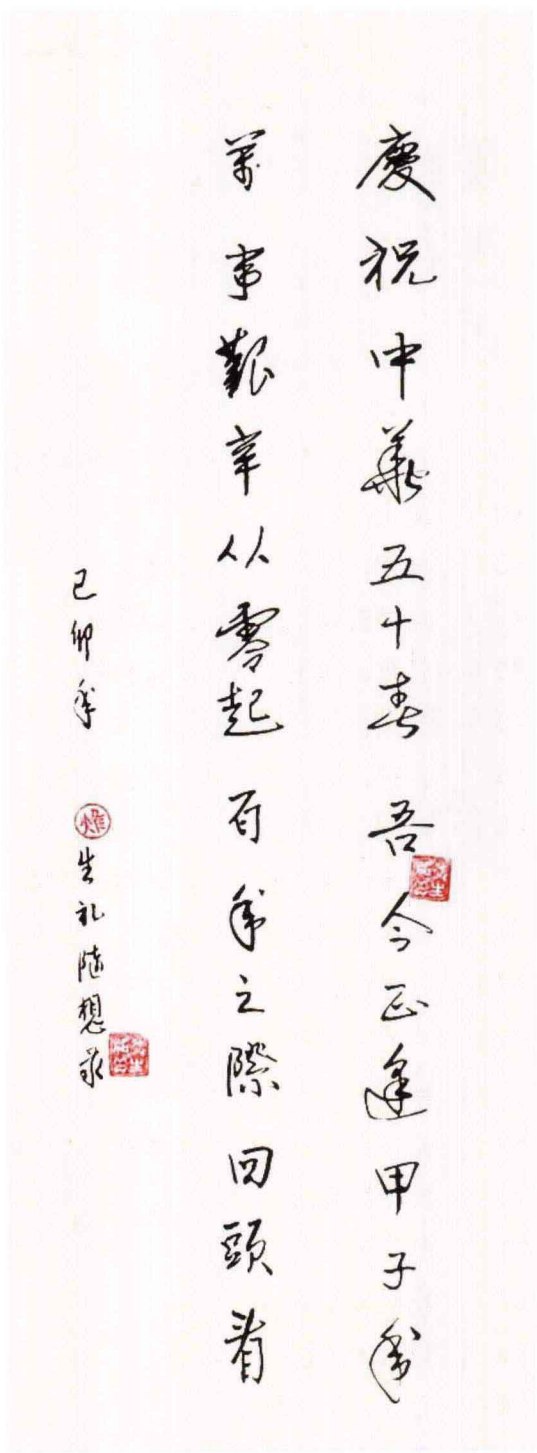 慶祝中華五十春吾今正逢甲子年
萬事艱辛从零起百年之際回頭看
己卯年 生礼随想录